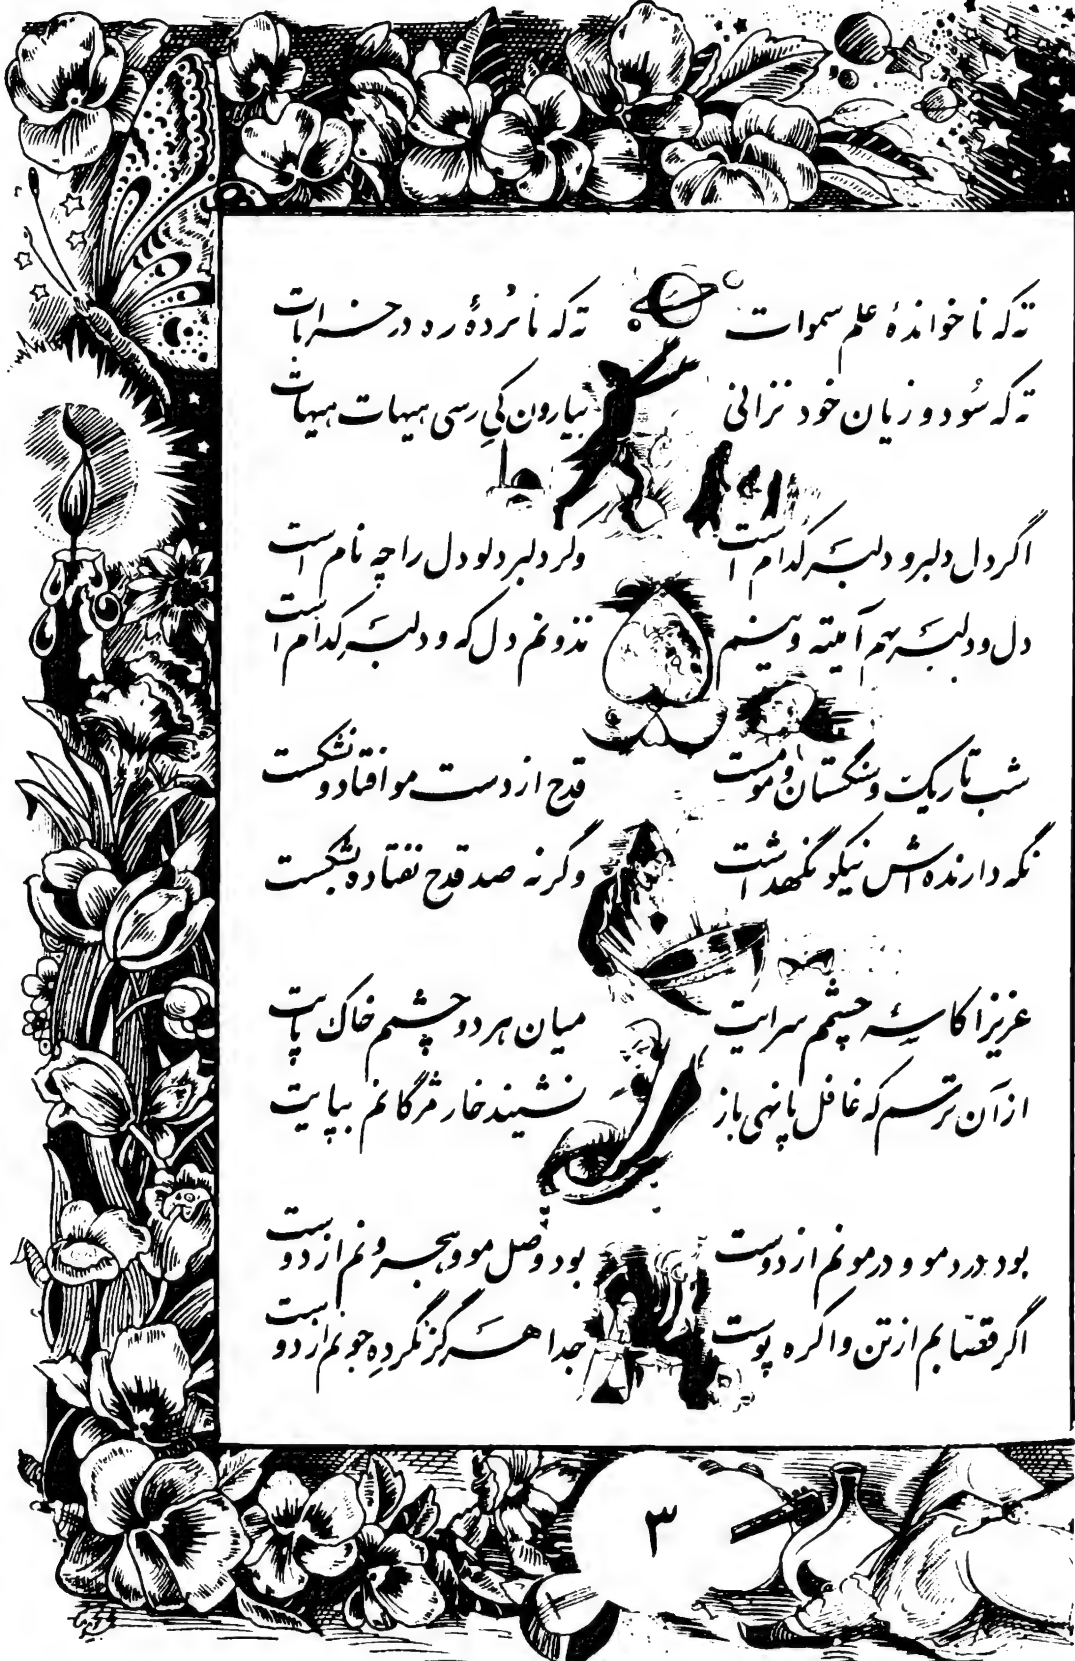 ته که ناخواندهٔ علم سموات ته که نابُردهٔ ره در خرابات
ته که سُود و زیان خود نزانی بیارون کیِ رسی هیهات هیهات
اگر دل دلبر و دلبر کدام است وگر دلبر دلو دل را چه نام است
دل و دلبر بهم آمیته وینم نذونم دل که و دلبر کدام است
شب تاریک و سنگستان و مومست قدح از دست مو افتاد و نشکست
نگه دارنده‌اش نیکو نگهداشت وگرنه صد قدح نفتاده بشکست
عزیزا کاسهٔ چشمم سرایت میان هر دو چشمم خاک پایت
از آن ترسم که غافل پا نهی باز نشیند خار مژگانم بپایت
بود درد مو و درمونم از دوست بود وصل مو و هجرونم از دوست
اگر قصّابم از تن واکره پوست جدا هرگز نگرده جونم از دوست
۳